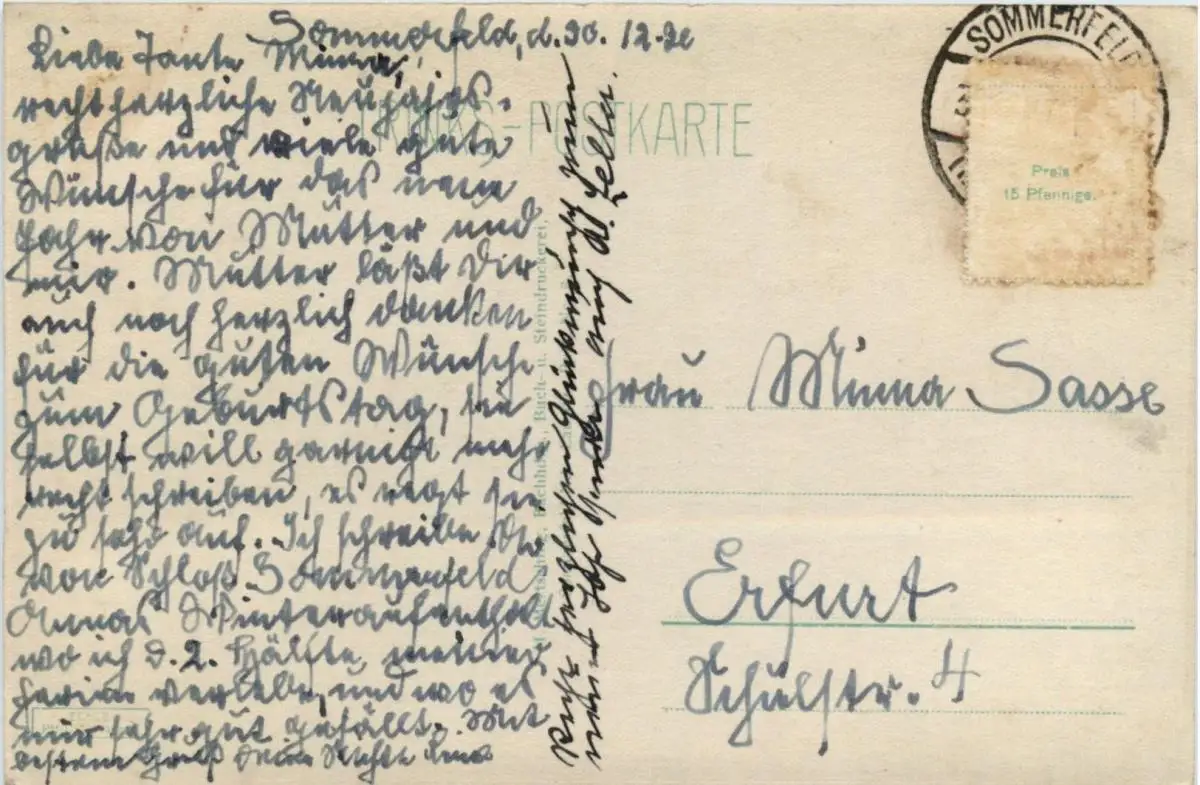 Sommerfeld, d. 30. 12.
Liebe Tante Minna,
recht herzliche Neujahrs-
grüße und viele gute
Wünsche für das neue
Jahr von Mutter und
mir. Mutter läßt Dir
auch noch herzlich danken
für die guten Wünsche
zum Geburtstag, sie
selbst will garnicht mehr
recht schreiben, es regt sie
zu sehr auf. Ich schreibe Dir
von Schloß Sommerfeld
Annas Winteraufenthalt
wo ich d. 2. Hälfte meiner
Ferien verlebe, und wo es
mir sehr gut gefällt. Mit
bestem Gruß Deine Nichte
Recht herzlichen Glückwunsch zum
neuen Jahr
-POSTKARTE
Buch- u. Steindruckerei
SOMMERFELD
Preis
15 Pfennige.
Frau Minna Sasse
Erfurt
Schulstr. 4